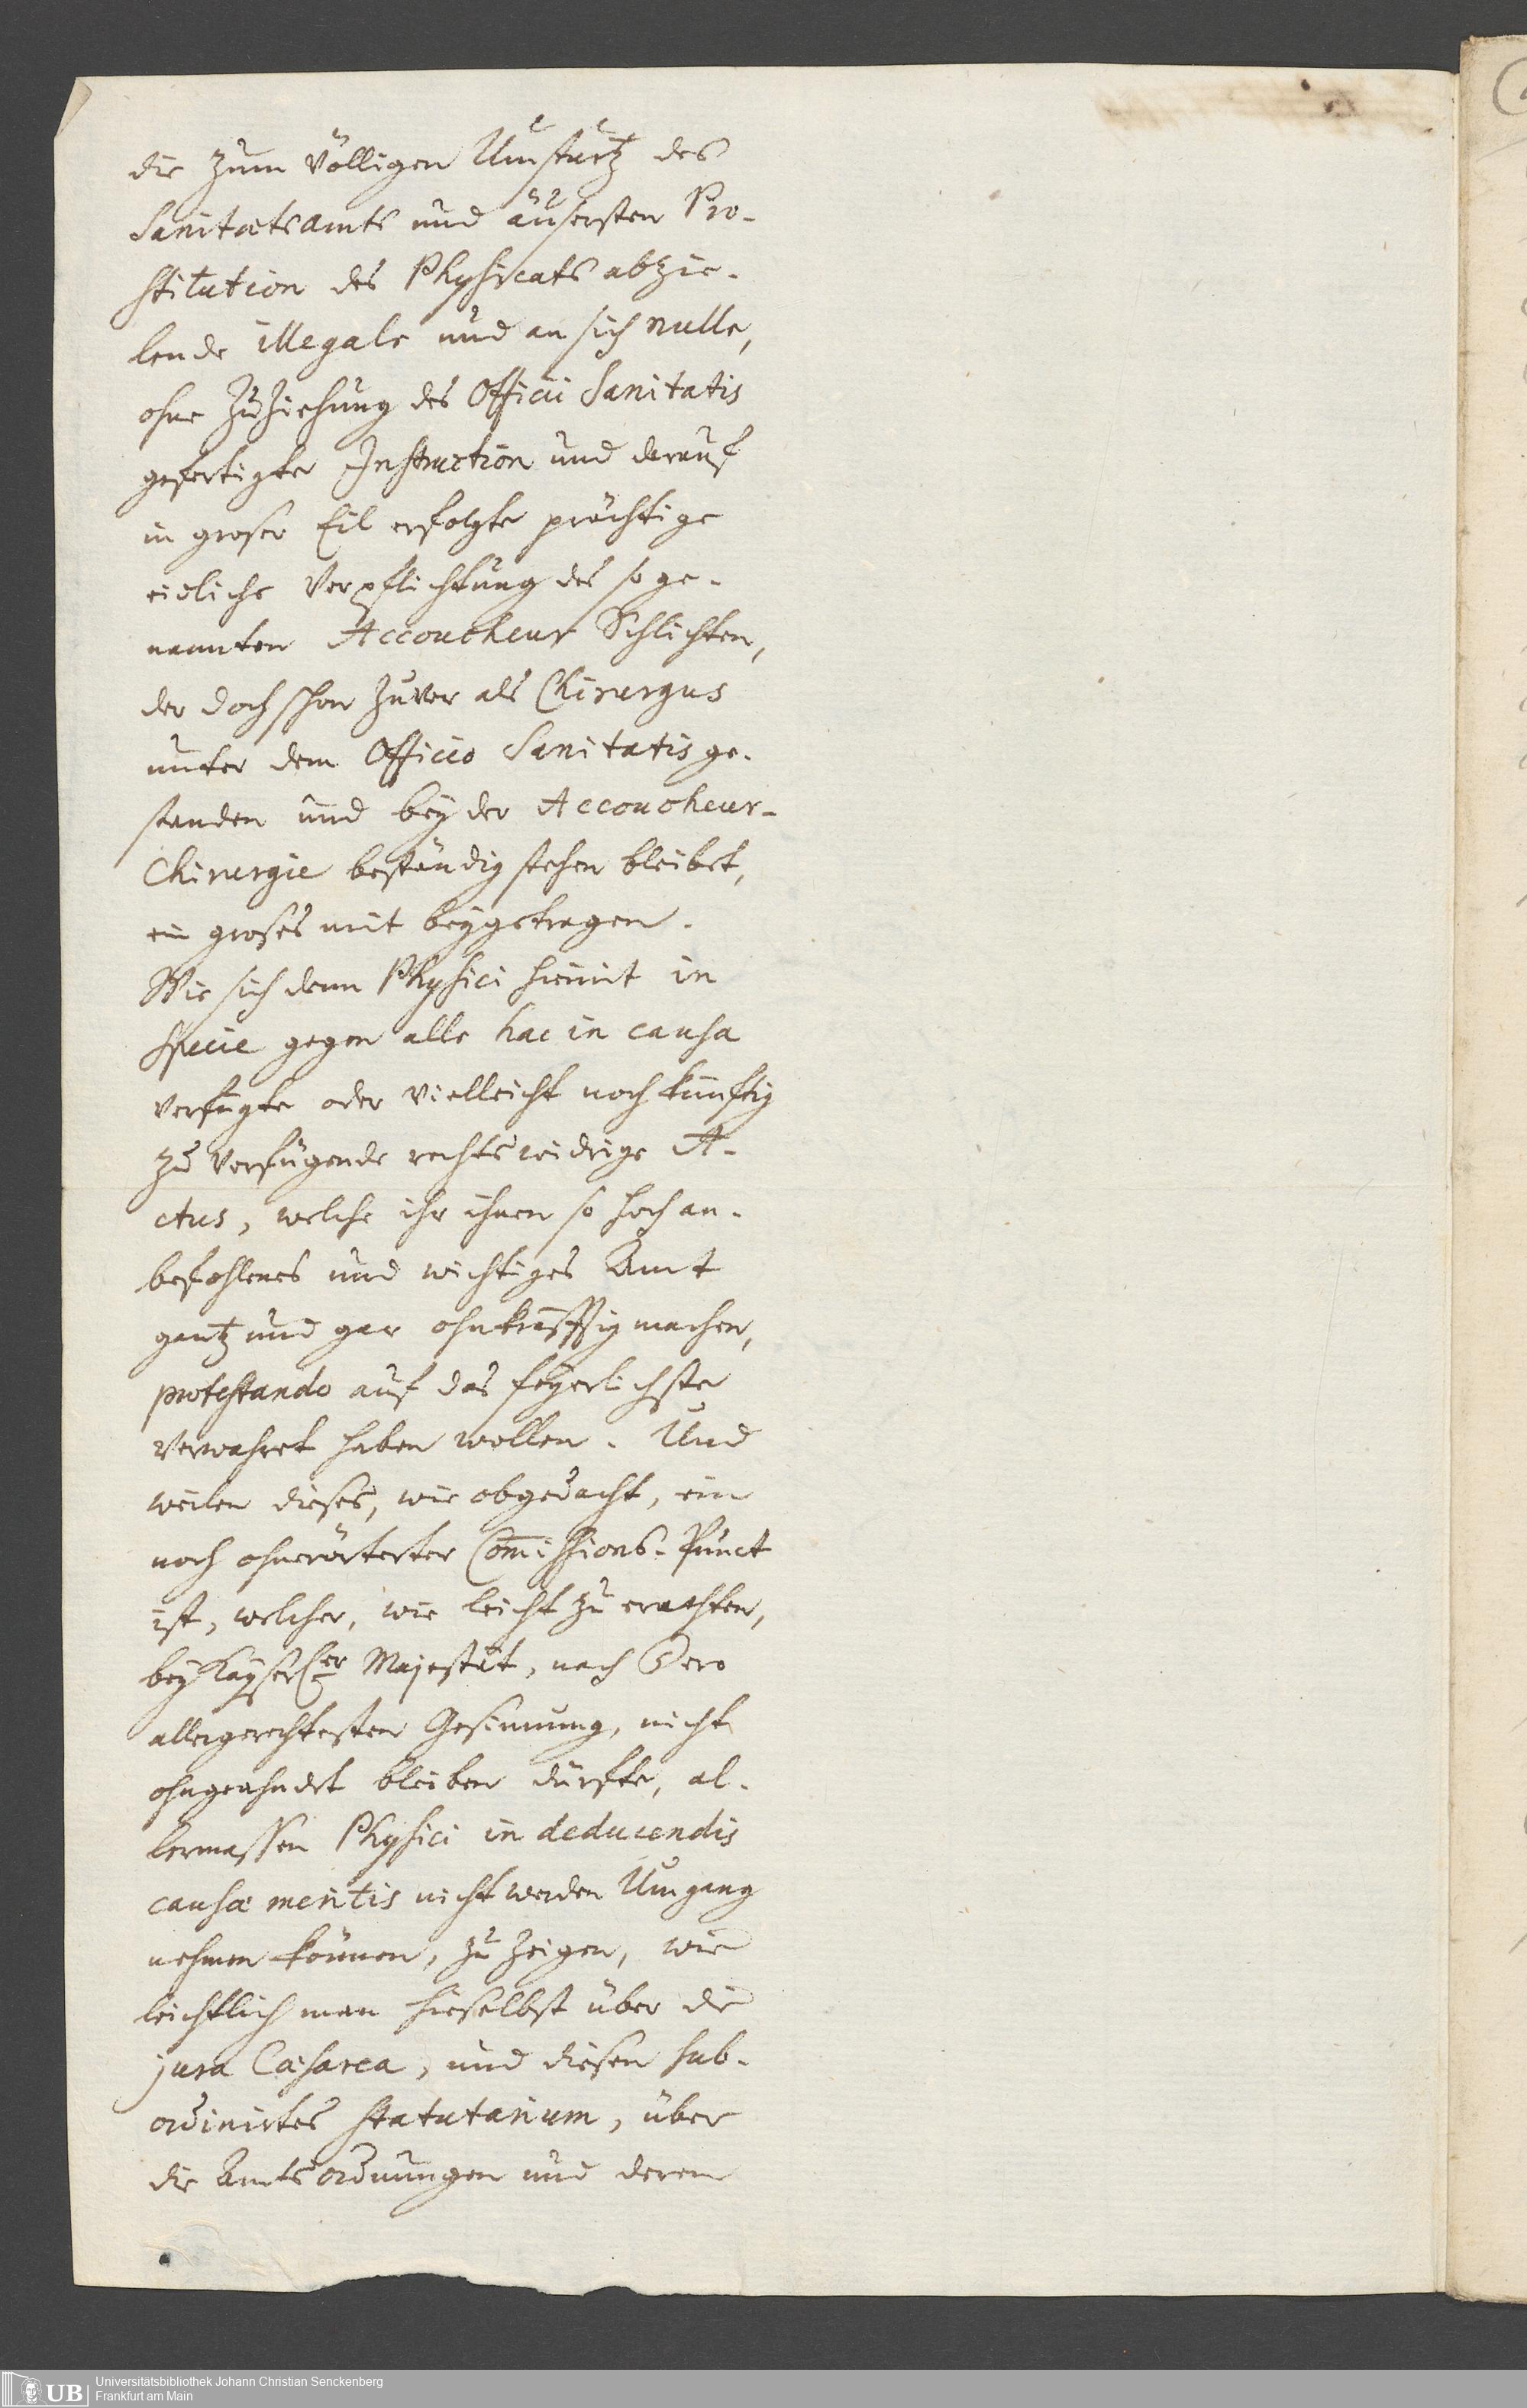 die zum völligen Umsturtz des
Sanitætsamts und äusersten Pro-
stitution des Physicats abzie-
lende illegale und an sich nulle,
ohne Zuziehung des Officii Sanitatis
gefertigte Instruction und darauf
in groser Eil erfolgte prächtige
eidliche Verpflichtung des so ge-
nannten Accoucheur Schlichten,
der doch schon zuvor als Chirurgus
unter dem Officio Sanitatis ge-
standen und bey der Accoucheur-
Chirurgie beständig stehen bleibet,
ein groses mit beygetragen.
Wie sich denn Physici hiemit in
specie gegen alle hac in causa
verfügte oder vielleicht noch künftig
zu verfügende rechtswidrige A-
ctus, welche ihr ihnen so hoch an-
befohlenes und wichtiges Amt
gantz und gar ohnkräfftig machen,
protestando auf das feyerlichste
verwahret haben wollen. Und
weilen dieses, wie obgedacht, ein
noch ohnerörterter Com̅issions-Punct
ist, welcher, wie leicht zu erachten,
bey Kayserl.er Majestät, nach Dero
allergerechtesten Gesinnung, nicht
ohngeahndet bleiben dürfte, al-
lermassen Physici in deducendis
causæ meritis nicht werden Umgang
nehmen können, zu zeigen, wie
leichtlich man hieselbst über die
jura Cæsarea, und diesen sub-
ordinirtes statutarium, über
die Amtsordnungen und deren
UB
Universitätsbibliothek Johann Christian Senckenberg
Frankfurt am Main